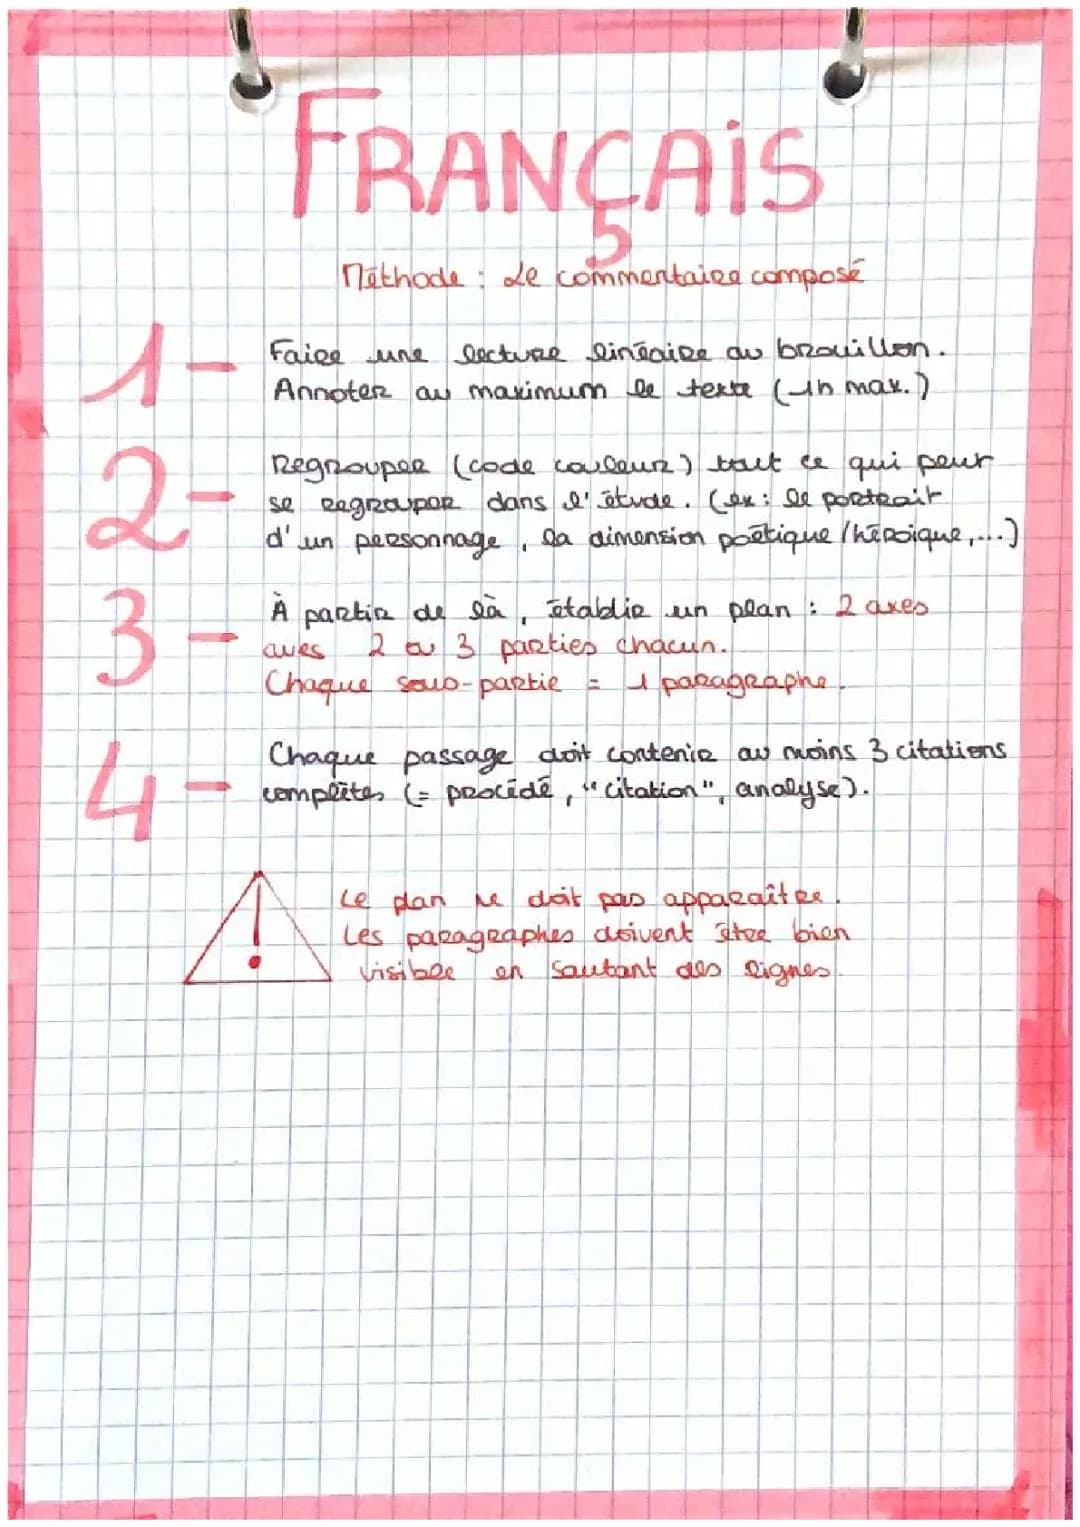 FRANÇAIS
Méthode : Le commentaire composé
1- Faire une lecture linéaire au brouillon.
Annoter au maximum le texte (1h max.)
2- Regrouper (code couleur) tout ce qui peur
se regrouper dans l'étude. (ex: le portrait
d'un personnage, la dimension poétique/héroïque,...)
3- À partir de là, établir un plan : 2 axes
aves 2 ou 3 parties chacun.
Chaque sous-partie = 1 paragraphe.
4- Chaque passage doit contenir au moins 3 citations
complètes (= procédé, "citation", analyse).
! Le plan ne doit pas apparaître.
Les paragraphes doivent être bien
visible en sautant des lignes.